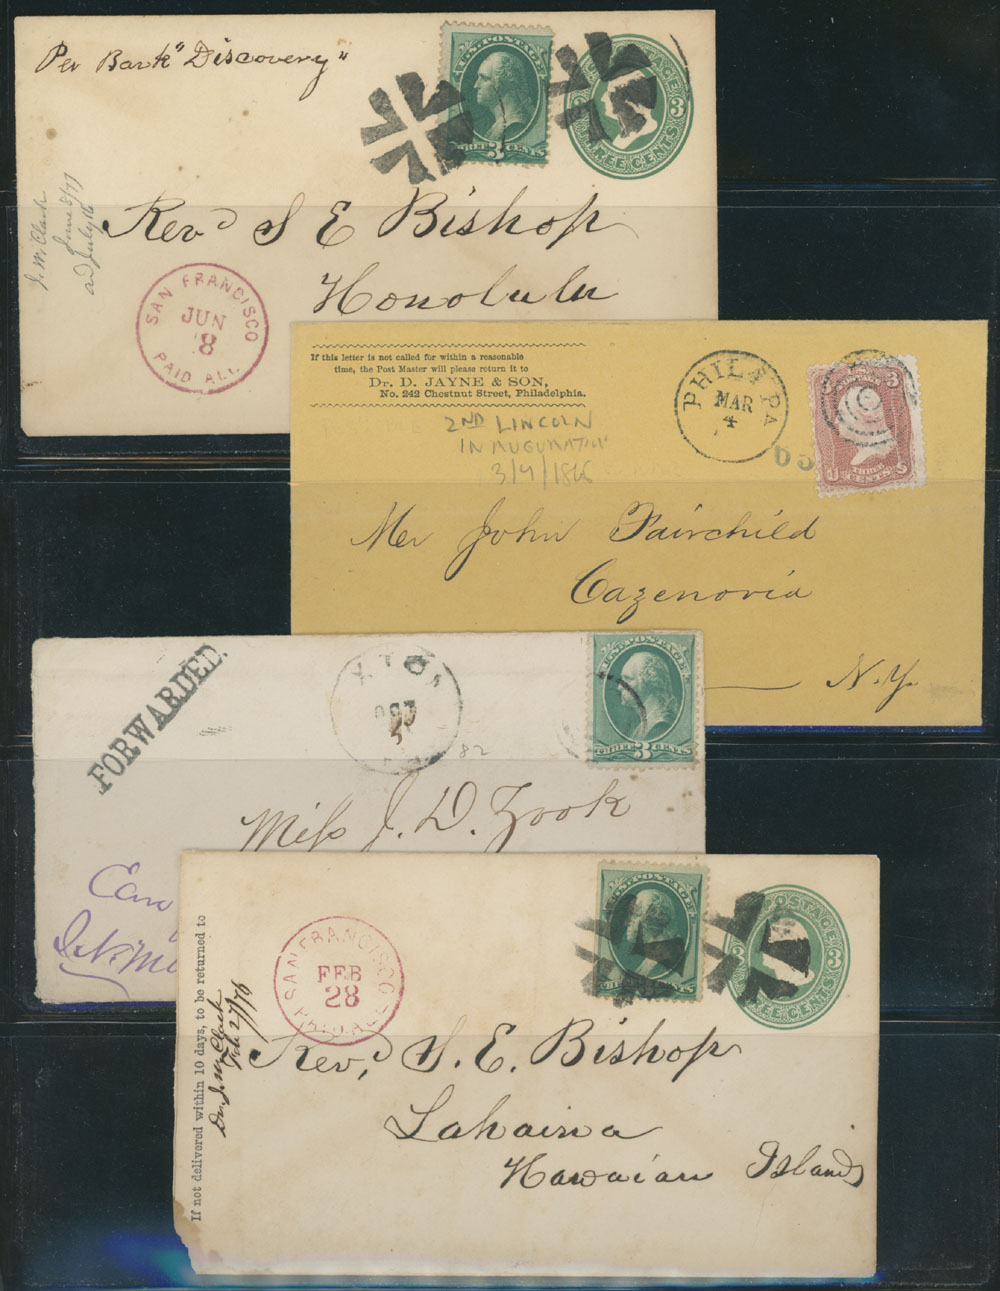 Per Bark "Discovery"
U.S. POSTAGE
THREE 3 CENTS
POSTAGE
3
THREE CENTS
Rev.d S E Bishop
Honolulu
J. M. Clark
June 8/77
and July 16
SAN FRANCISCO
JUN
8
PAID ALL
If this letter is not called for within a reasonable
time, the Post Master will please return it to
Dr. D. JAYNE & SON,
No. 242 Chestnut Street, Philadelphia.
2ND LINCOLN
INAUGURATION
PHIL'A PA
MAR
4
65
3
THREE
CENTS
Mr John Fairchild
Cazenovia
N.Y.
FORWARDED.
82
U.S. POSTAGE
THREE 3 CENTS
Miss J. D. Zook
If not delivered within 10 days, to be returned to
Dr. J. M. Clark
Feb. 27/76
SAN FRANCISCO
FEB
28
PAID ALL
U.S. POSTAGE
POSTAGE
3
CENTS
Rev.d S. E. Bishop
Lahaina
Hawaiian Islands